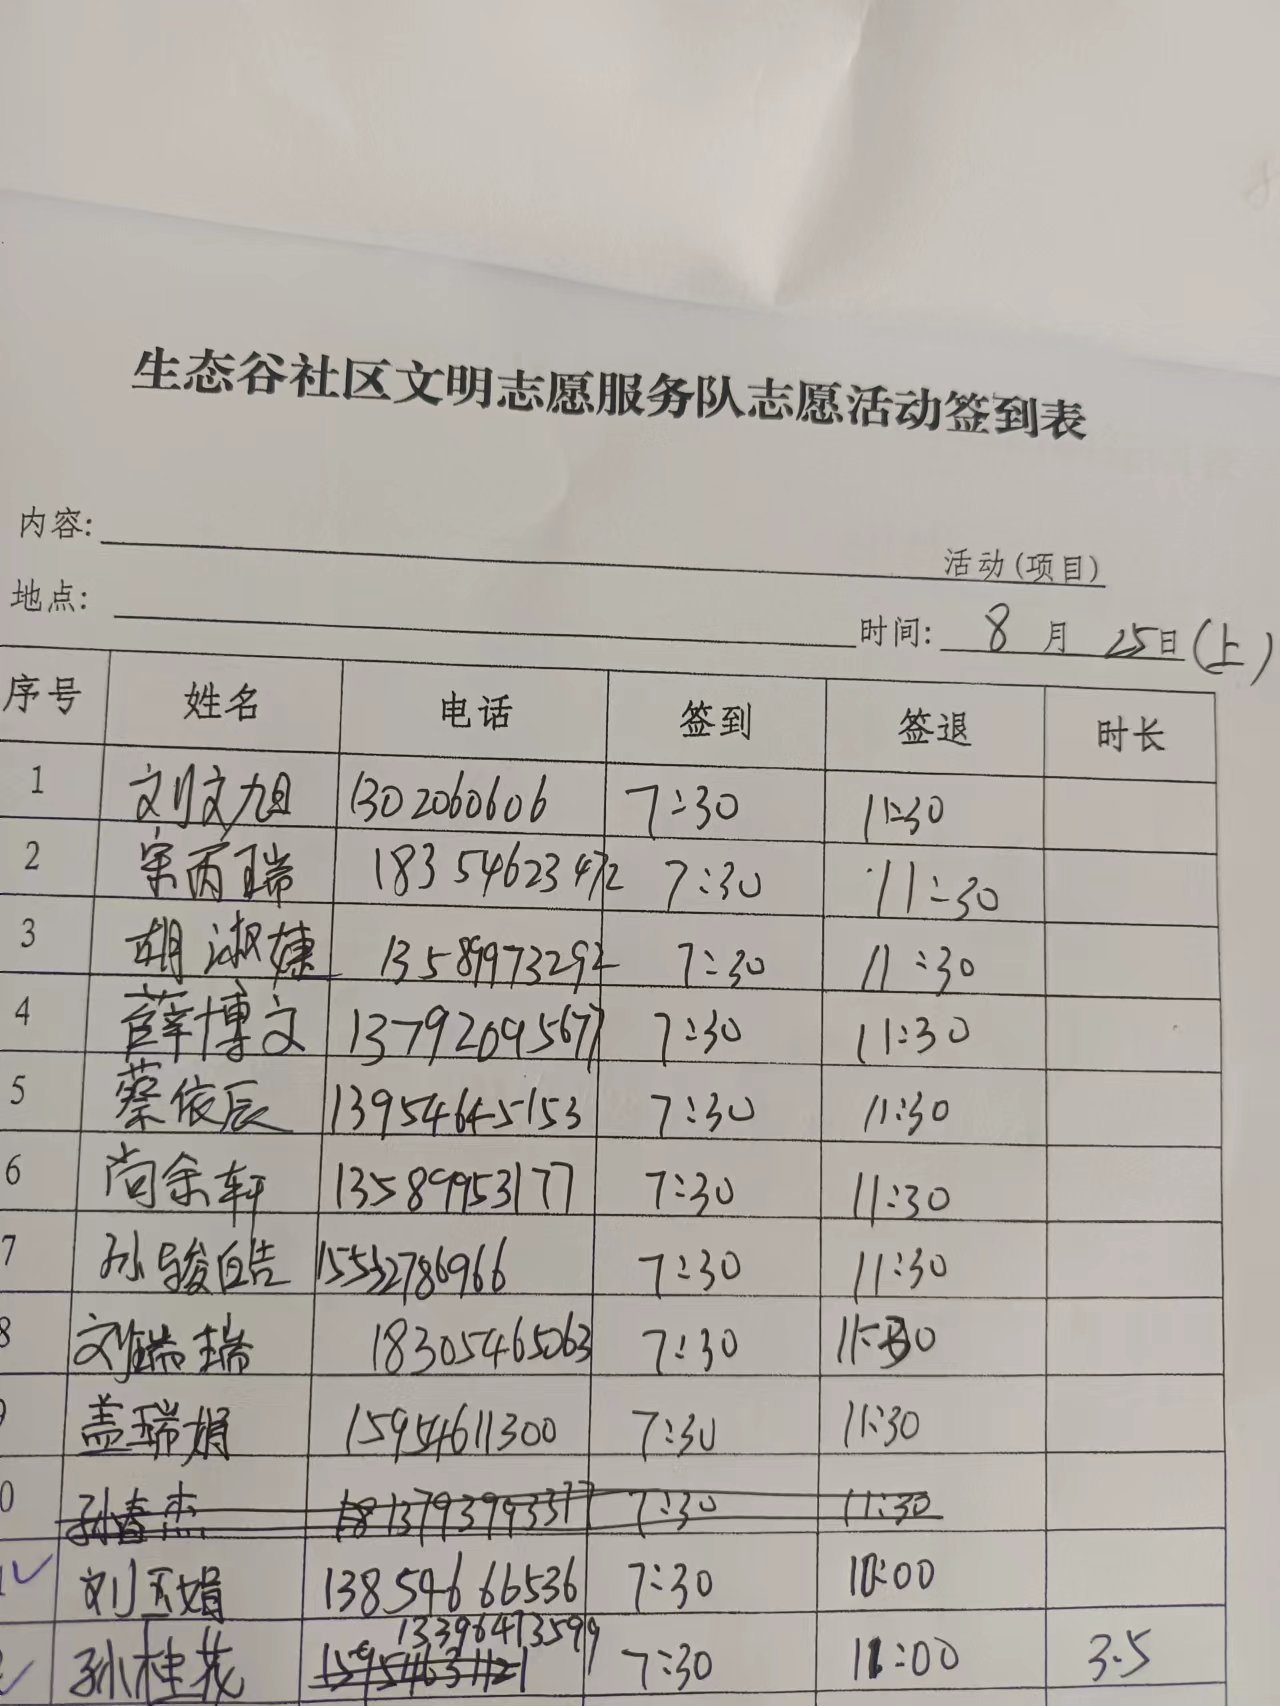 生态谷社区文明志愿服务队志愿活动签到表
内容: 活动(项目)
地点: 时间: 8月25日(上)
序号 姓名 电话 签到 签退 时长
1 刘文旭 1302060606 7:30 11:30
2 宋丙瑞 18354623472 7:30 11:30
3 胡淑婕 13589973292 7:30 11:30
4 薛博文 13792095677 7:30 11:30
5 蔡依辰 13954645153 7:30 11:30
6 尚余轩 13589953177 7:30 11:30
7 孙骏皓 15552786966 7:30 11:30
8 刘瑞瑞 18305465063 7:30 11:30
盖瑞娟 15954611300 7:30 11:30
0 孙春杰 7:30 11:30
刘玉娟 13854666536 7:30 11:00
13396473599
孙桂花 15954631121 7:30 11:00 3.5